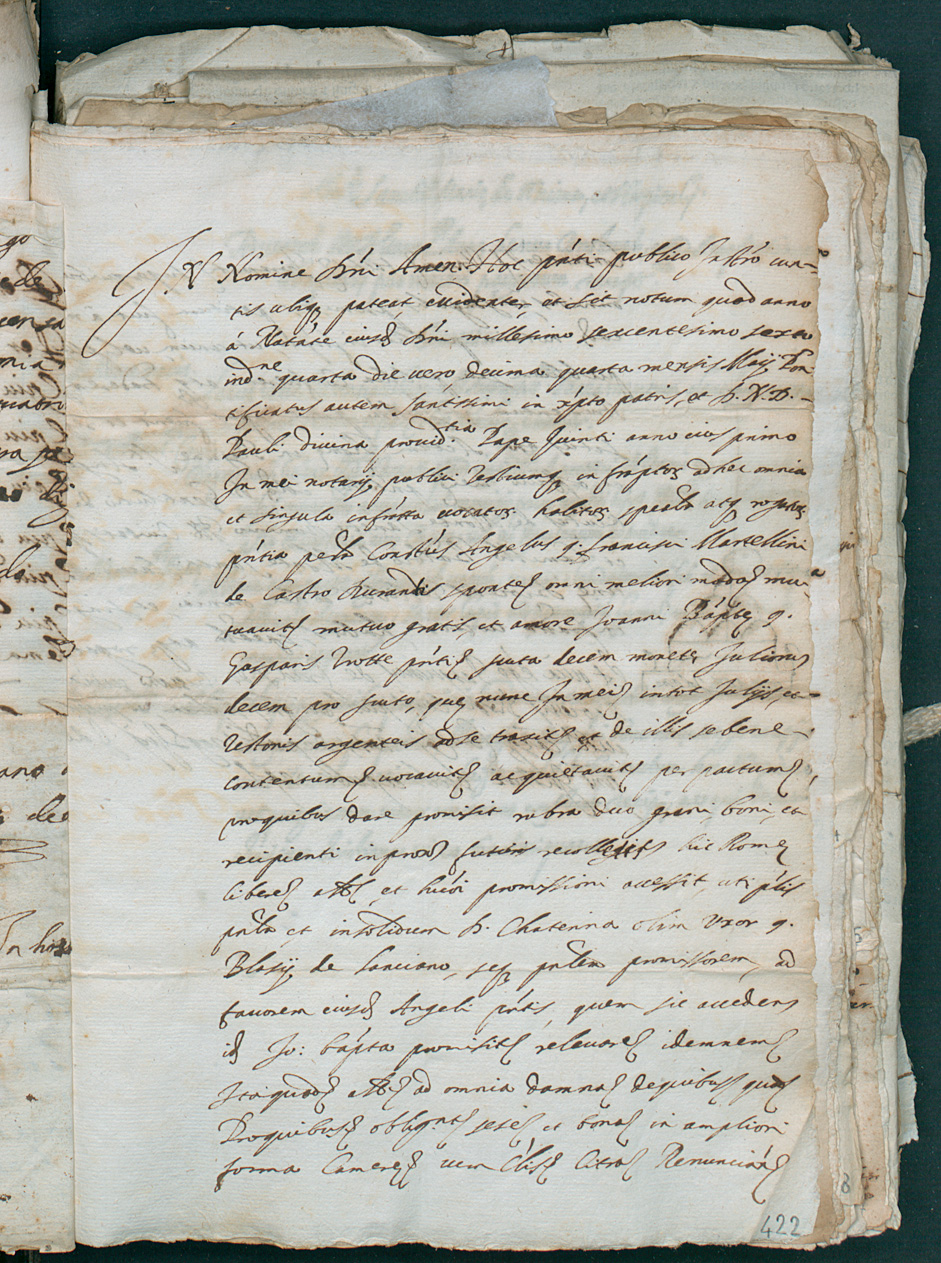 In Nomine Dni Amen. Hoc pñti publico Instro cun=
tis ubiqz pateat, evidenter, et sit notum quod anno
à Natãte eiusd Dni millesimo sexcentesimo sexto
indne quarta die vero decima quarta mensis Maij Pon
tificatus autem santissimi in xpto patris, et D. N. D. =
Pauli divina provid.tia Pape Quinti anno eius primo
In mei notarij publici testiumqz infrãptoz ad hec omnia
et singula infrãtta vocatoz habitoz spealr atqz rogatoz
pñtia perlr Constũs Angelus q. francisci Martellini
de Castro Durantis sponte omni meliori modo mu
tuavit mutuo gratis et amore Joanni Bãpte q.
Gasparis Trotte pñti scuta decem monete Julioruz
decem pro scuto, que nunc In mei in tot Julijs, et
testonis argenteis ad se traxit et de illis se bene
contentum vocavit ac quietavit per pactum,
pro quibus dare promisit rubra duo grani, boni, et
recipienti in prox futuri hic Rome
libere als, et huiõi promissioni accessit, uti plis
prlr et insolidum D. Chaterina olim Uxor q.
Blasij de Lanciano, seqz prñlem promissorem, ad
favorem eiusd Angeli pñtis, quem sic accedens
id Jo: bãpta promisit relevare idemnem
Ita quod als ad omnia damna de quibus quos
Pro quibus obligãt sese et bona in ampliori
forma Camere cum clãlis Citra Renunciãns
422